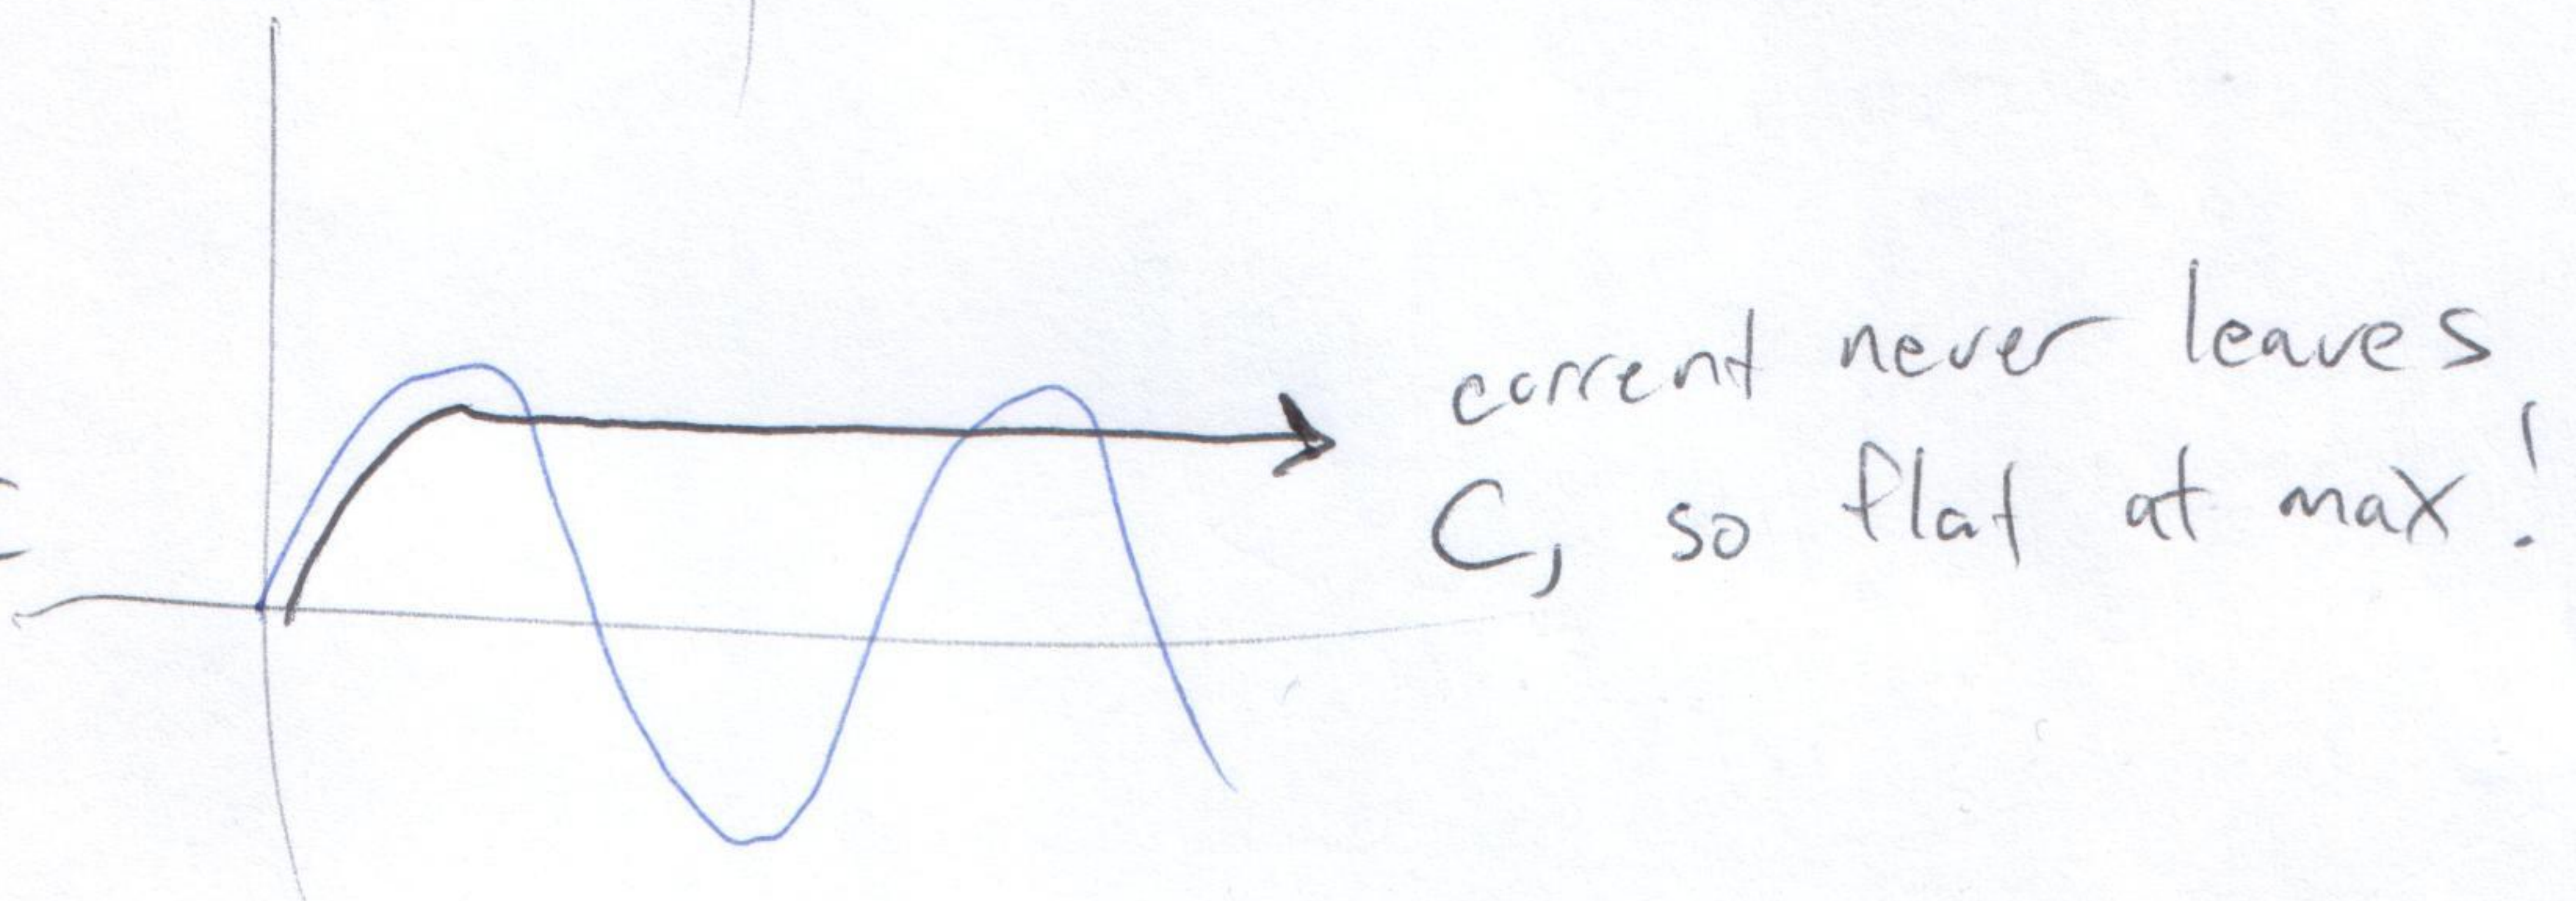 current never leaves
C, so flat at max!